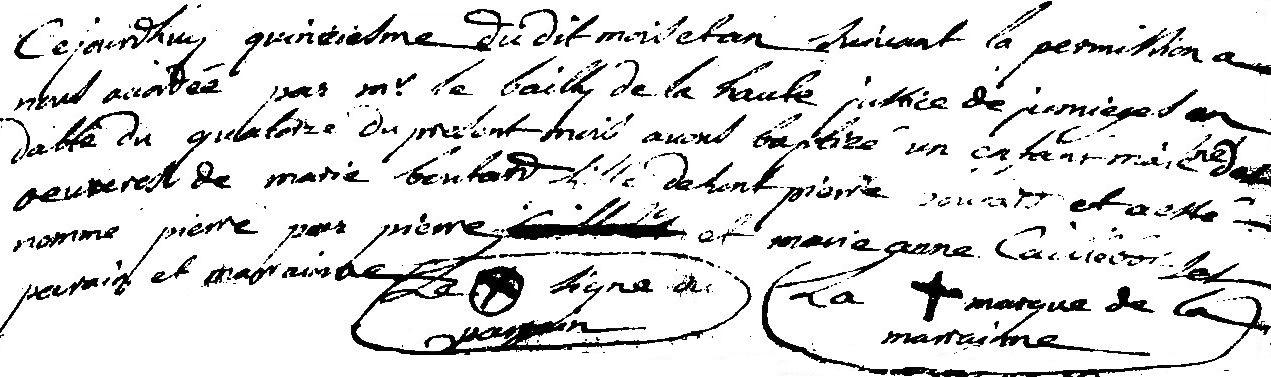 Cejourdhuy quinziesme du dit mois et an suivant la permission a
nous acordée par mr. le bailly de la haute justice de jumieges en
datte du quatorze du present mois avons baptizé un enfant masle né des
oeuvres de marie boutard fille de font pierre et a esté
nommé pierre par pierre et marie anne ses
parain et marainne Le signe du La marque de la
parrain marrainne